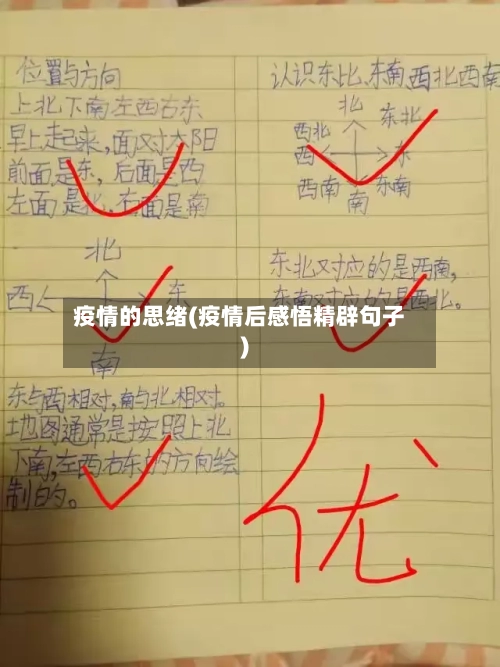 位置与方向
上北下南左西右东
早上起来,面对太阳
前面是东,后面是西
左面是北,右面是南
北
西 东
南
东与西相对,南与北相对。
地图通常是按照上北
下南,左西右东的方向绘
制的。
认识东北、东南、西北、西南
北
西北 东北
西 东
西南 南 东南
东北对应的是西南,
东南对应的是西北。
疫情的思绪(疫情后感悟精辟句子
)
优